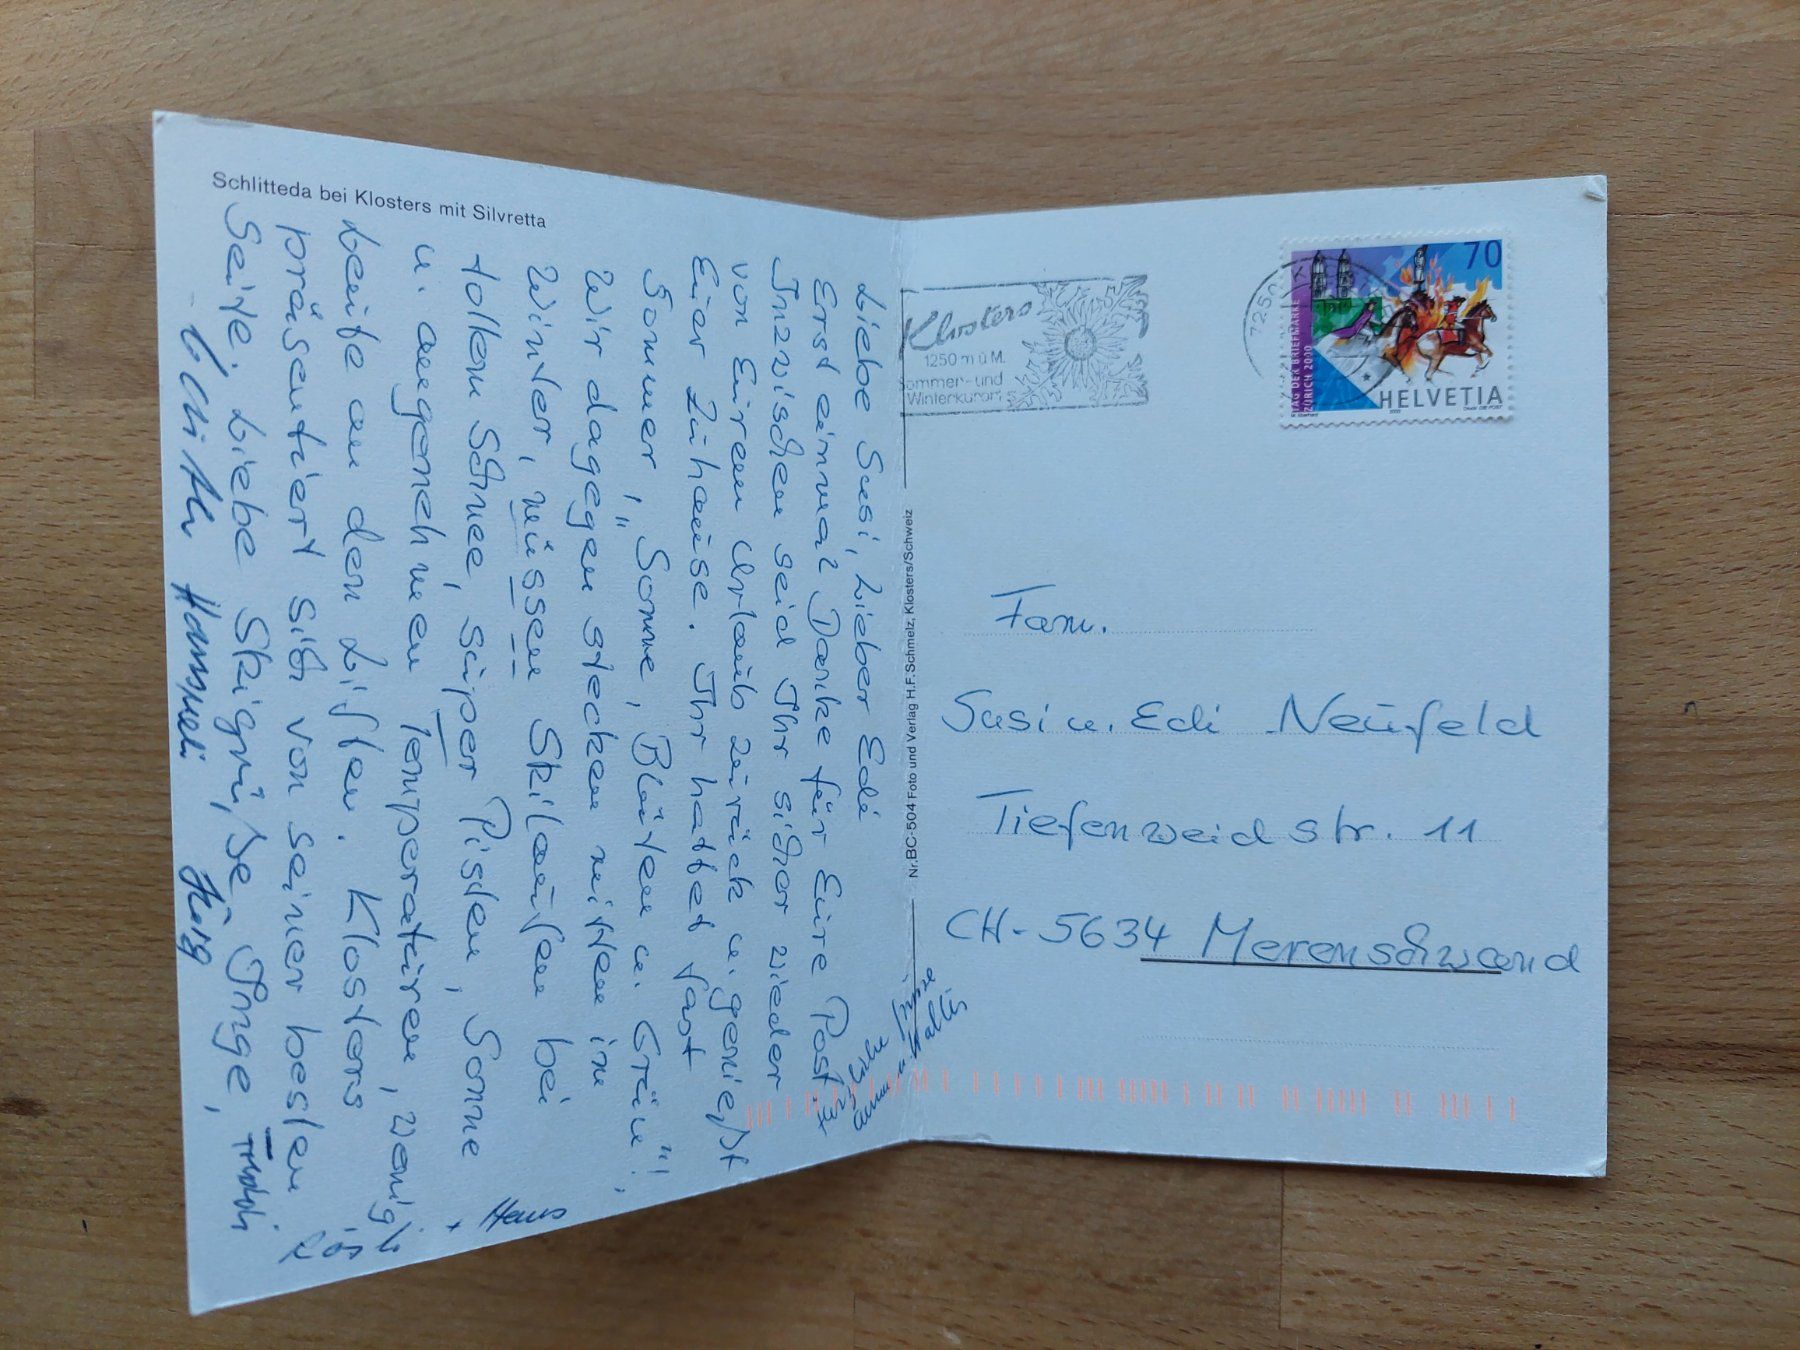 Schlitteda bei Klosters mit Silvretta
Liebe Susi, Lieber Edi
Erst einmal Danke für Eure Post
Inzwischen seid Ihr sicher wieder
von Eurem Urlaub zurück u. genießt
Euer Zuhause. Ihr hattet fast
Sommer, "Sonne, Blüten u. Grün"!,
Wir dagegen stecken mitten im
Winter, müssen Skilaufen bei
tollem Schnee, super Pisten, Sonne
u. angenehmen Temperaturen, wenig
Leute an den Liften. Klosters
präsentiert sich von seiner besten
Seite. Liebe Skigrüße Inge,
Hansueli Jürg
+ Hans
Herzliche Grüsse
Nr. BC-504 Foto und Verlag H.F. Schmelz, Klosters/Schweiz
Klosters
1250 m ü M.
Sommer- und
Winterkurort
7250
70
TAG DER BRIEFMARKE
ZÜRICH 2000
HELVETIA
Fam.
Susi u. Edi Neufeld
Tiefenweidstr. 11
CH-5634 Merenschwand